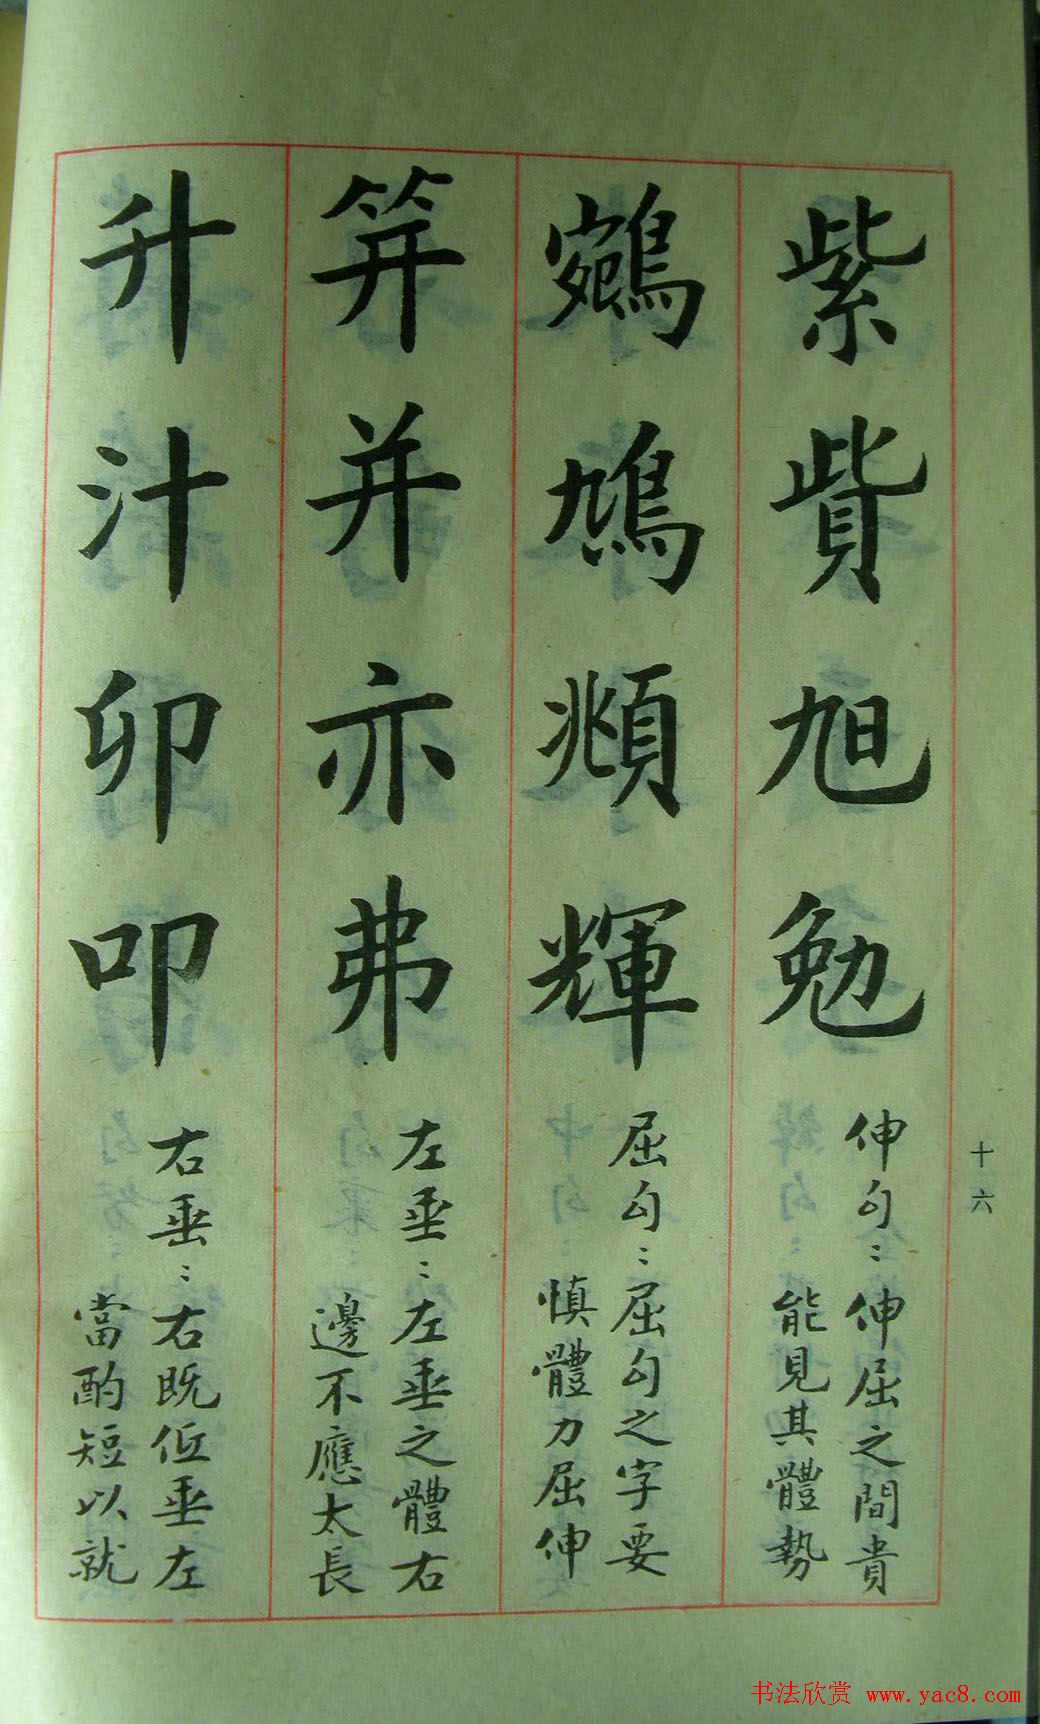 紫貲旭勉
伸勾：伸屈之間貴
能見其體勢
鵷鳩頫輝
屈勾：屈勾之字要
慎體力屈伸
笄并亦弗
左垂：左垂之體右
邊不應太長
升汁卯叩
右垂：右既低垂左
當酌短以就
十六
书法欣赏 www.yac8.com